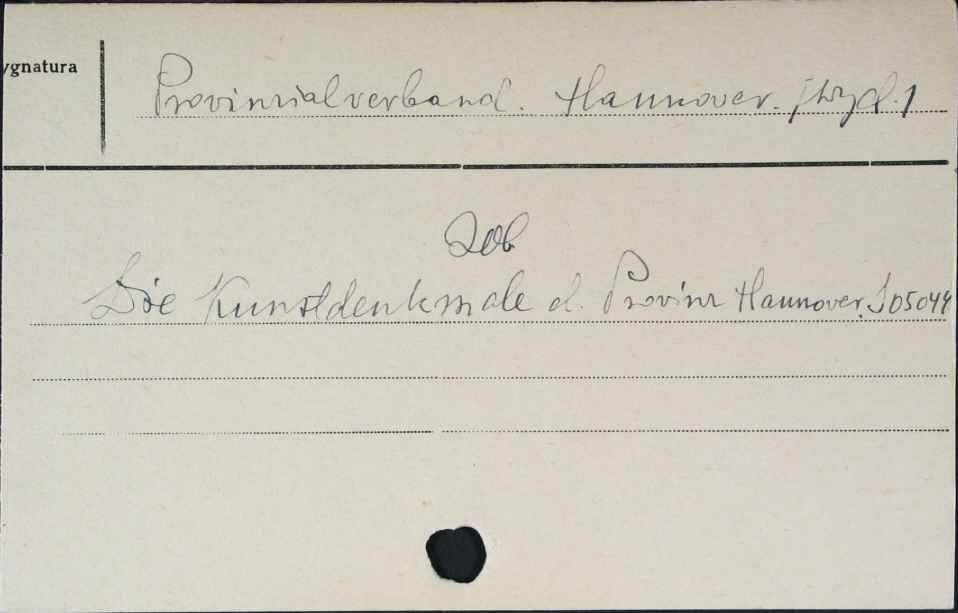 ygnatura
Provinzialverband. Hannover. /wyd./
Zob
Die Kunstdenkmale d. Provinz Hannover. J05044